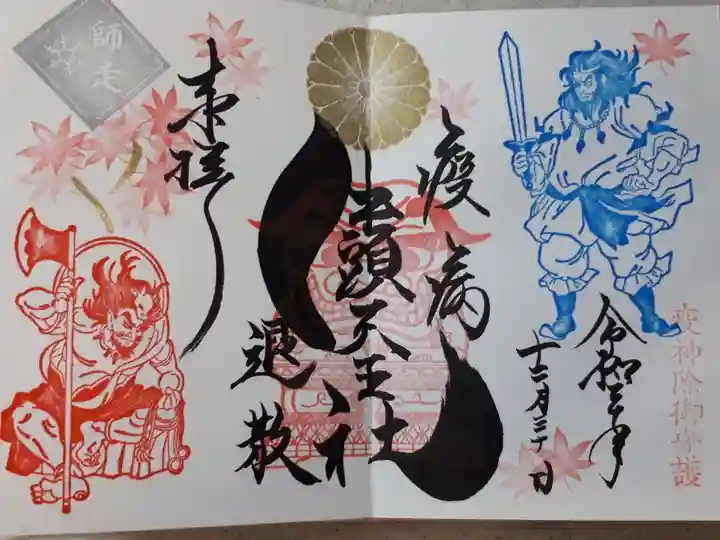 疫神除御守護
令和三年
十二月三十日
疫病
退散
牛頭天王社
奉拝
師走